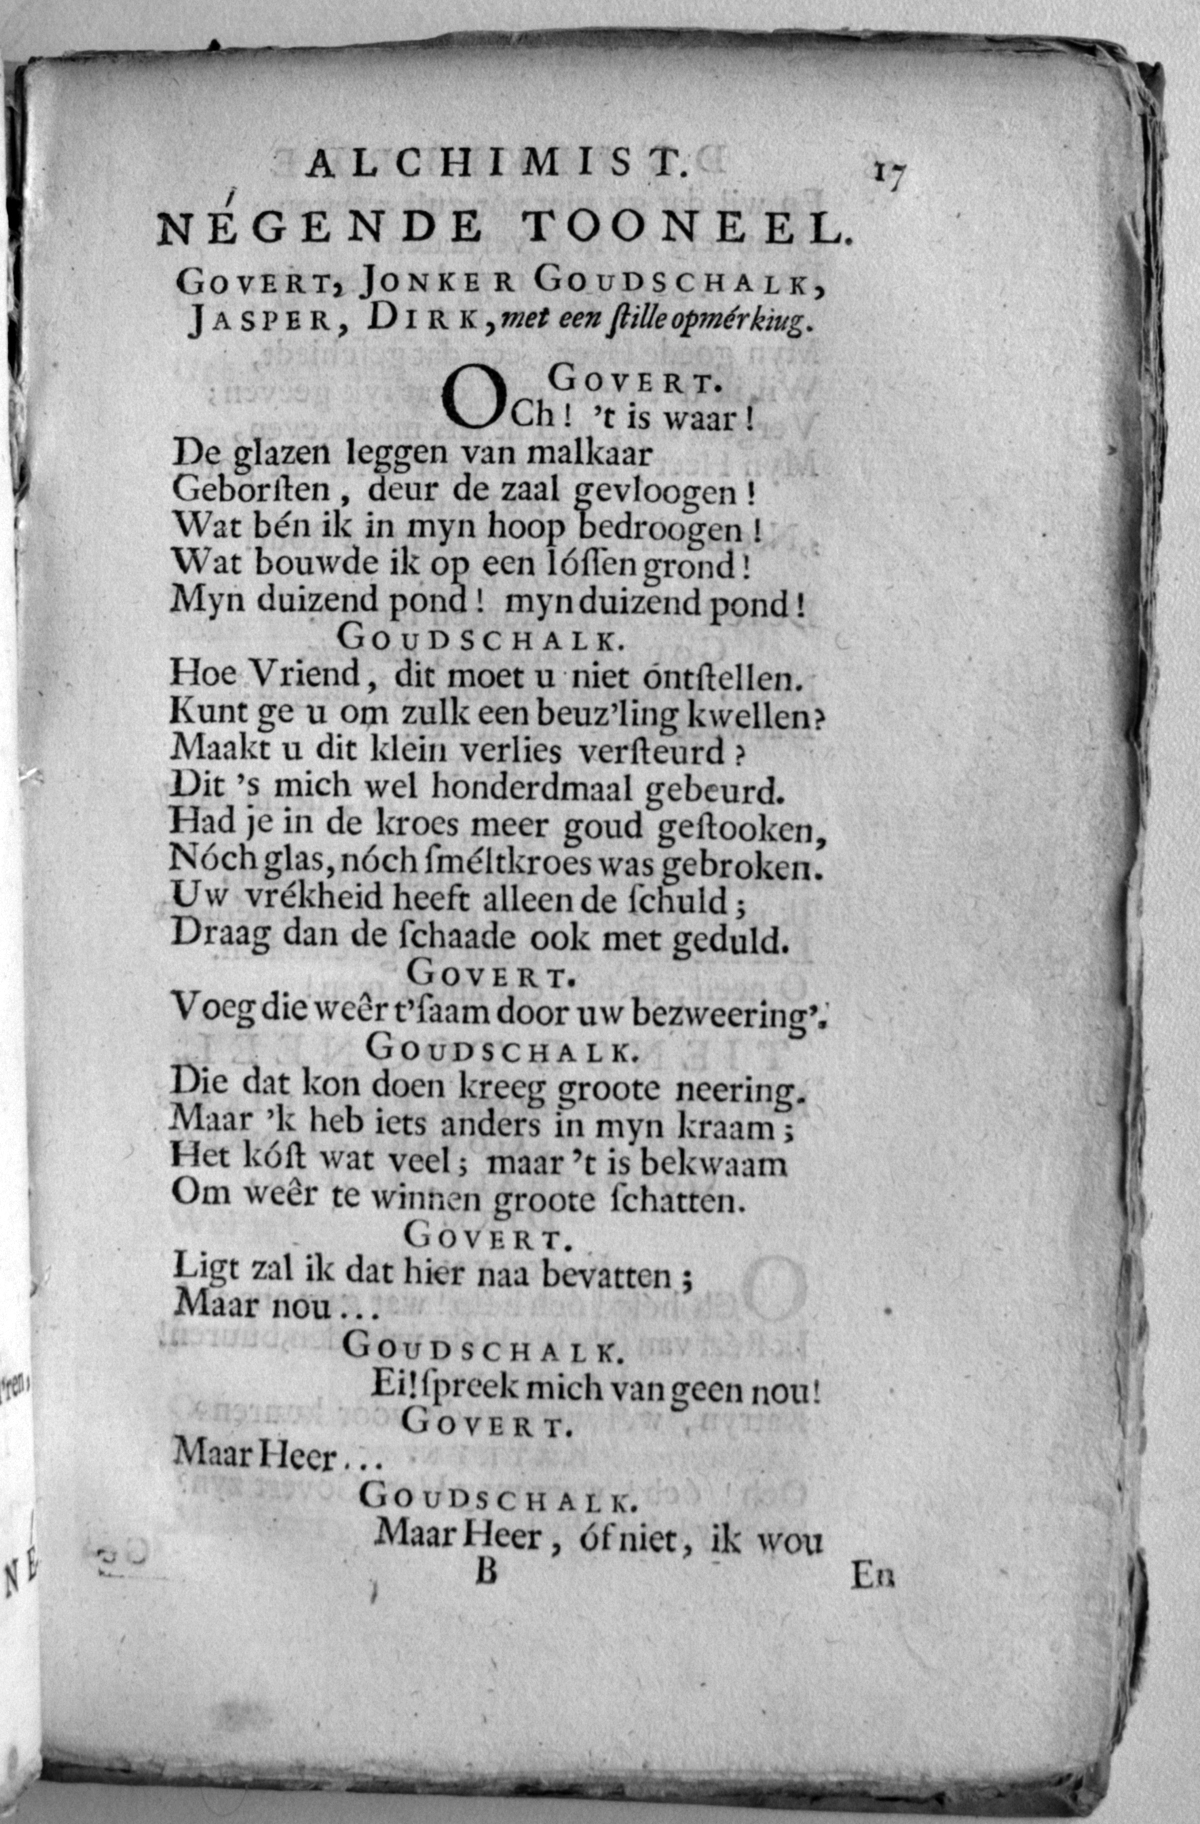 ALCHIMIST. 17
NÉGENDE TOONEEL.
GOVERT, JONKER GOUDSCHALK,
JASPER, DIRK, met een ſtille opmérkiug.
GOVERT.
OCh! 't is waar!
De glazen leggen van malkaar
Geborſten, deur de zaal gevloogen!
Wat bén ik in myn hoop bedroogen!
Wat bouwde ik op een lóſſen grond!
Myn duizend pond! myn duizend pond!
GOUDSCHALK.
Hoe Vriend, dit moet u niet óntſtellen.
Kunt ge u om zulk een beuz'ling kwellen?
Maakt u dit klein verlies verſteurd?
Dit 's mich wel honderdmaal gebeurd.
Had je in de kroes meer goud geſtooken,
Nóch glas, nóch ſméltkroes was gebroken.
Uw vrékheid heeft alleen de ſchuld;
Draag dan de ſchaade ook met geduld.
GOVERT.
Voeg die weêr t'ſaam door uw bezweering'.
GOUDSCHALK.
Die dat kon doen kreeg groote neering.
Maar 'k heb iets anders in myn kraam;
Het kóſt wat veel; maar 't is bekwaam
Om weêr te winnen groote ſchatten.
GOVERT.
Ligt zal ik dat hier naa bevatten;
Maar nou...
GOUDSCHALK.
Ei! ſpreek mich van geen nou!
GOVERT.
Maar Heer...
GOUDSCHALK.
Maar Heer, óf niet, ik wou
B En